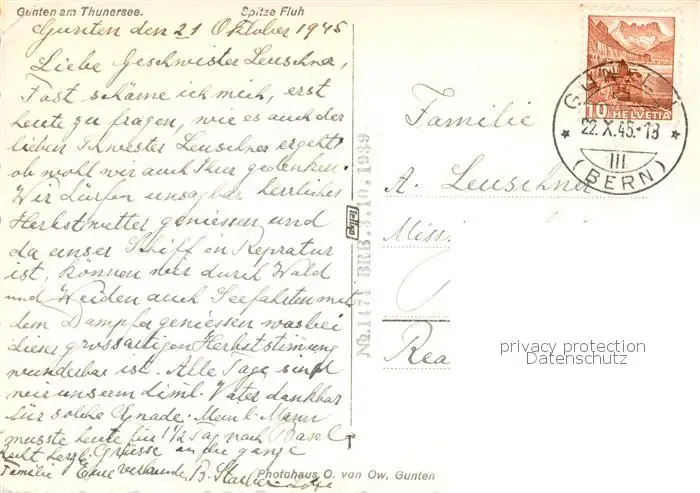 Gunten am Thunersee. Spitze Fluh
Gunten den 21 Oktober 1945
Liebe Geschwister Leuschner,
Fast schäme ich mich, erst
heute zu fragen, wie es auch der
lieben Schwester Leuschner ergeht
ob wohl wir auch Ihrer gedenken.
Wir dürfen unsagbar herrliches
Herbstwetter geniessen und
da unser Schiff in Repratur
ist, können wir durch Wald
und Weiden auch Seefahrten mit
dem Dampfer geniessen was bei
dieser grossartigen Herbststimmung
wunderbar ist. Alle Tage sind
wir unserm himl. Vater dankbar
für solche Gnade. Mein l. Mann
musste heute für 1½ Tag nach Basel
recht herzl. Grüsse an die ganze
Familie
Photohaus O. von Ow, Gunten
No. 1174 BRB. 3.10.1939
Familie
A. Leuschner
Missi
Rea
10 HELVETIA
GUNTEN
22.X.45.-18
III
(BERN)
privacy protection
Datenschutz